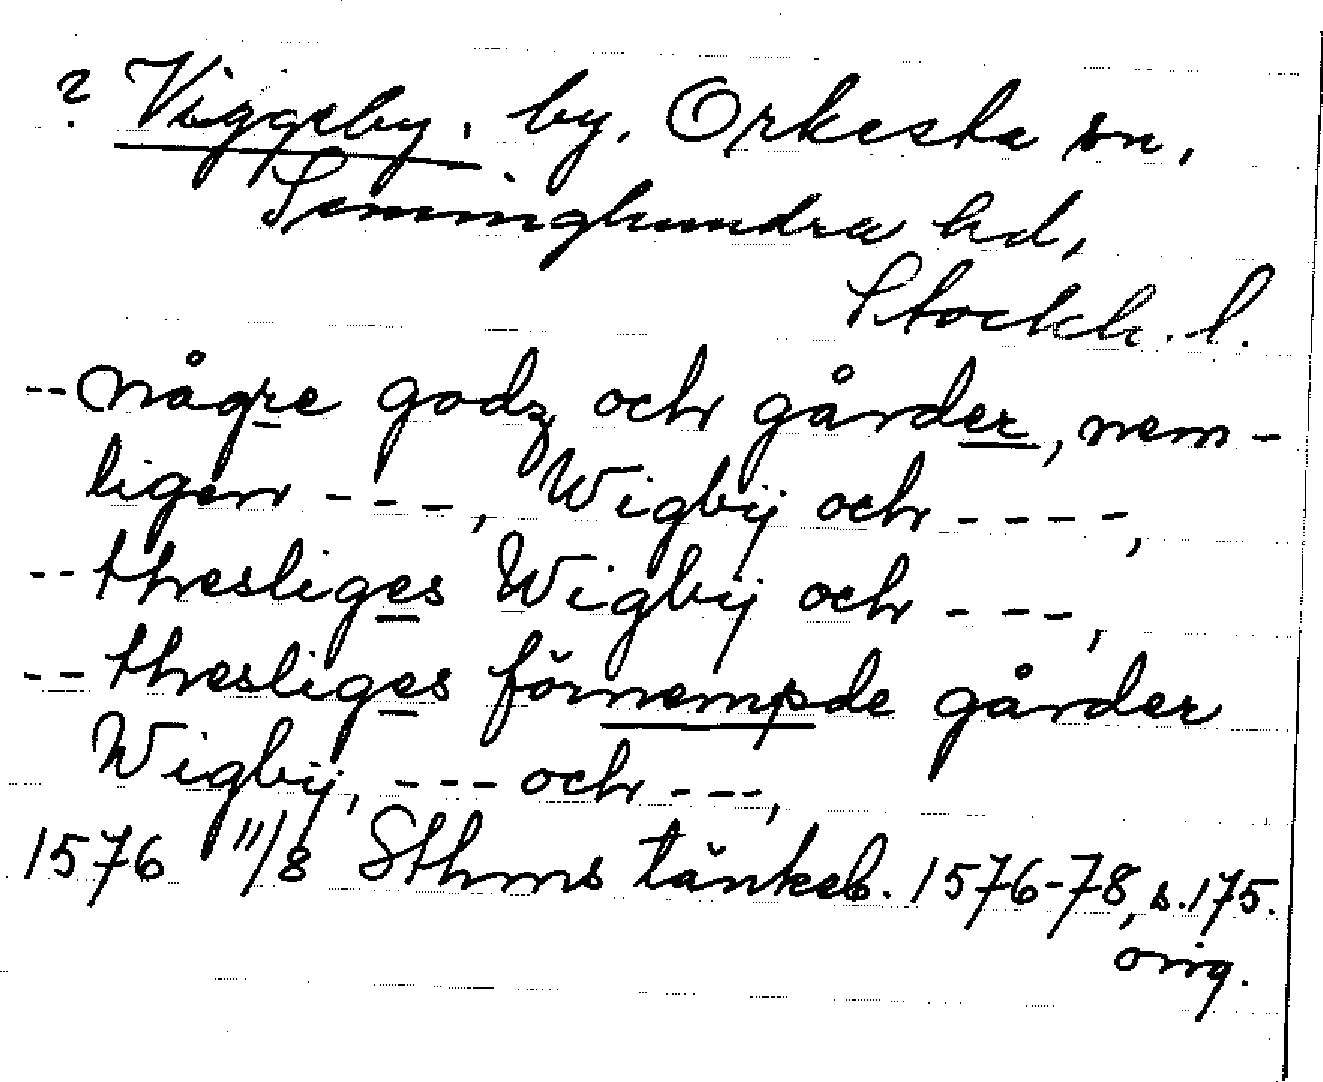 ? Viggeby. by, Orkesta sn,
Seminghundra hd,
Stockh. l.
-- någre godz och gårder, nem-
ligen ---, Wigbÿ och ----,
-- thesliges Wigbÿ och ---,
-- thesliges förnempde gårder
Wigbÿ, --- och ---,
1576 11/8 Sthms tänkeb. 1576-78, s. 175.
orig.